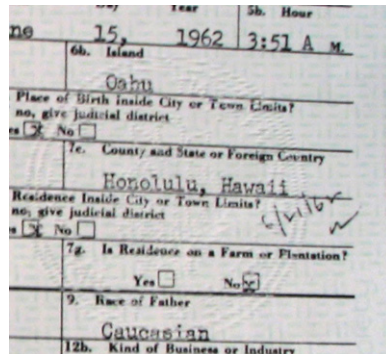 Year 5b. Hour
ne 15, 1962 3:51 A M.
6b. Island
Oahu
Place of Birth Inside City or Town Limits?
no, give judicial district
es ☒ No ☐
7c. County and State or Foreign Country
Honolulu, Hawaii
Residence Inside City or Town Limits?
no, give judicial district
es ☒ No ☐
7g. Is Residence on a Farm or Plantation?
Yes ☐ No ☒
9. Race of Father
Caucasian
12b. Kind of Business or Industry